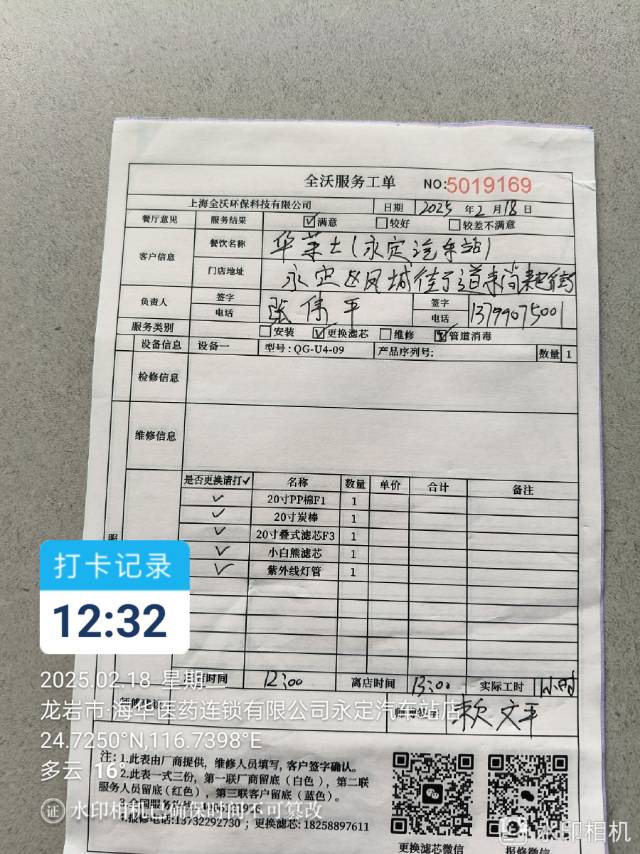 全沃服务工单 NO:5019169
上海全沃环保科技有限公司 日期 2025 年 2 月 18 日
餐厅意见 服务结果 ☑满意 ☐较好 ☐较差不满意
客户信息 餐饮名称 华莱士(永定汽车站)
门店地址 永定区凤城街道
负责人 签字 张伟平 签字
电话 电话 13799075001
服务类别 ☐安装 ☑更换滤芯 ☐维修 ☑管道消毒
设备信息 设备一 型号:QG-U4-09 产品序列号: 数量 1
检修信息
维修信息
是否更换请打✓ 名称 数量 单价 合计 备注
✓ 20寸PP棉F1 1
✓ 20寸炭棒 1
✓ 20寸叠式滤芯F3 1
✓ 小白熊滤芯 1
✓ 紫外线灯管 1
服
打卡记录
12:32
时间 12:00 离店时间 13:00 实际工时 1小时
2025.02.18 星期二
龙岩市·海华医药连锁有限公司永定汽车站店
赖文平
24.7250°N,116.7398°E
多云 16°
注:1.此表由厂商提供,维修人员填写,客户签字确认。
2.此表一式三份,第一联厂商留底(白色),第二联
服务人员留底(红色),第三联客户留底(蓝色)。
证 水印相机已确保时间不可篡改
4.报修电话:13732292730;更换滤芯:18258897611
更换滤芯微信 报修微信
水印相机